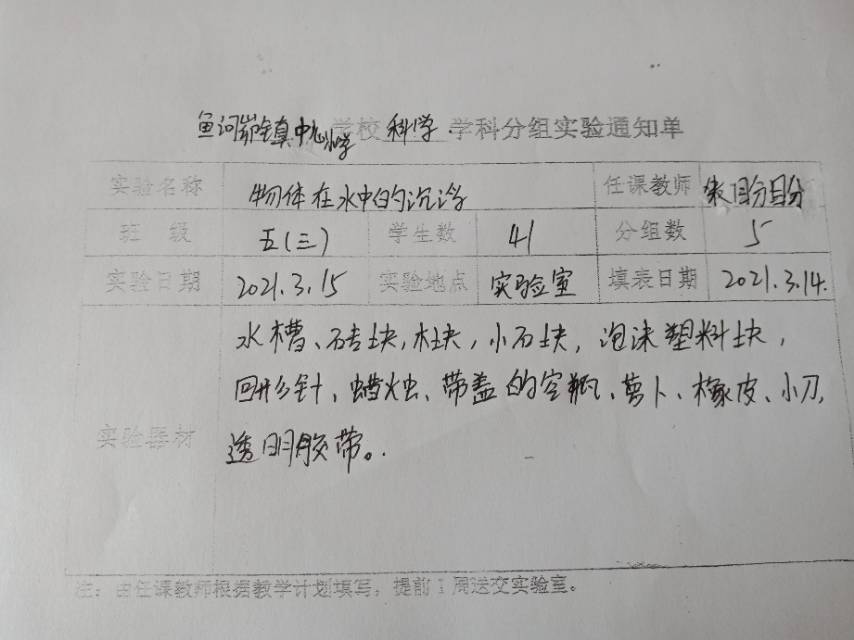 鱼河峁镇中心小学学校 科学 学科分组实验通知单
实验名称 物体在水中的沉浮 任课教师
班 级 五(三) 学生数 41 分组数 5
实验日期 2021.3.15 实验地点 实验室 填表日期 2021.3.14.
水槽、砖块,木块,小石块,泡沫塑料块,
回形针、蜡烛、带盖的空瓶、萝卜、橡皮、小刀,
实验器材 透明胶带。
注:由任课教师根据教学计划填写,提前1周送交实验室。